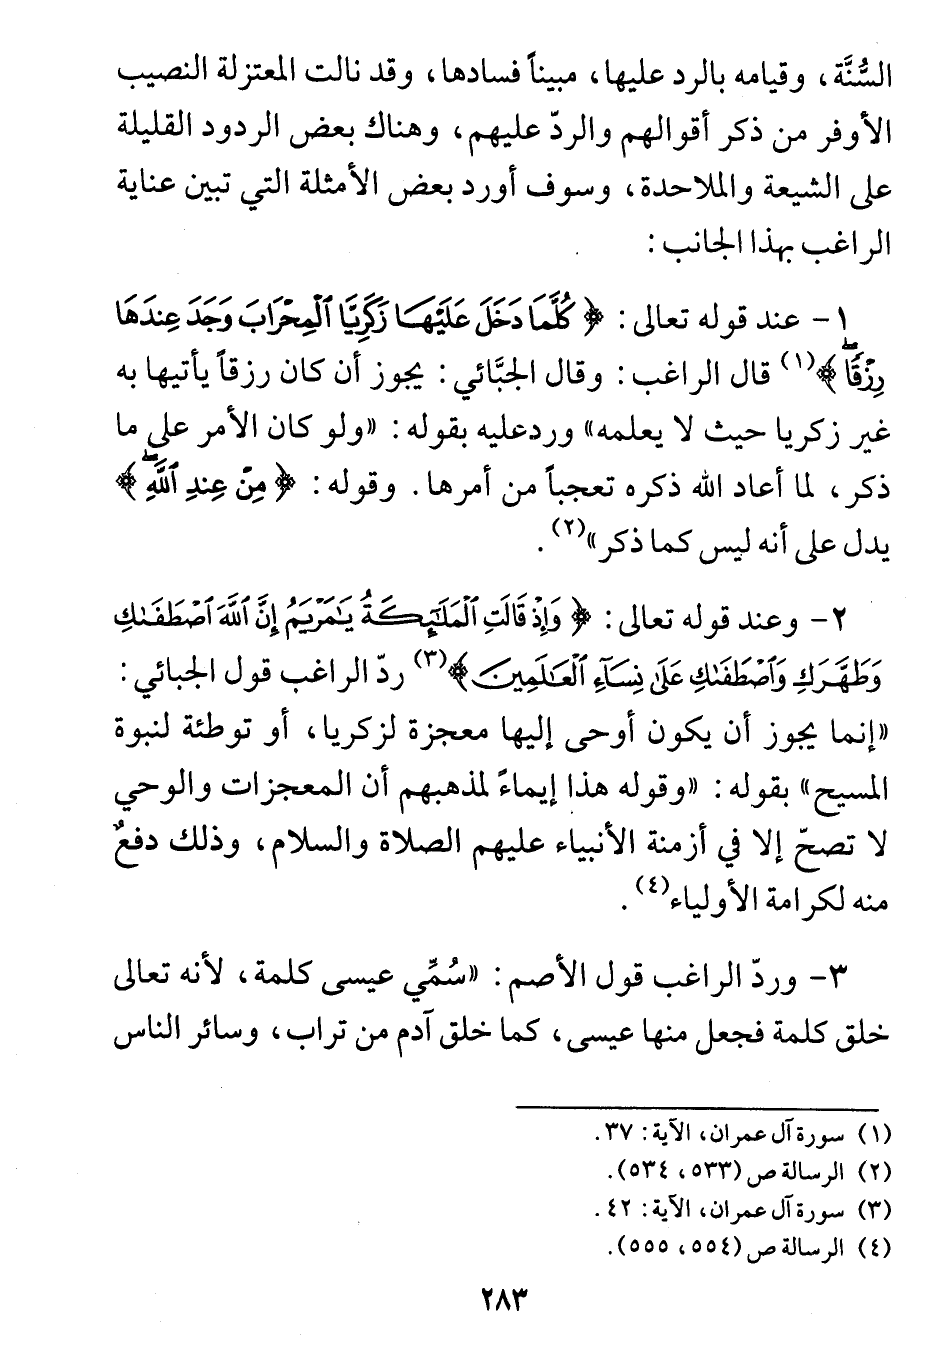 السُّنَّة، وقيامه بالرد عليها، مبيناً فسادها، وقد نالت المعتزلة النصيب
الأوفر من ذكر أقوالهم والردّ عليهم، وهناك بعض الردود القليلة
على الشيعة والملاحدة، وسوف أورد بعض الأمثلة التي تبين عناية
الراغب بهذا الجانب:
١- عند قوله تعالى: ﴿كُلَّمَا دَخَلَ عَلَيْهَا زَكَرِيَّا ٱلْمِحْرَابَ وَجَدَ عِندَهَا
رِزْقًاۖ﴾(١) قال الراغب: وقال الجبَّائي: يجوز أن كان رزقاً يأتيها به
غير زكريا حيث لا يعلمه» وردعليه بقوله: «ولو كان الأمر على ما
ذكر، لما أعاد الله ذكره تعجباً من أمرها. وقوله: ﴿مِنْ عِندِ ٱللَّهِۖ﴾
يدل على أنه ليس كما ذكر»(٢).
٢- وعند قوله تعالى: ﴿وَإِذْ قَالَتِ ٱلْمَلَٰٓئِكَةُ يَٰمَرْيَمُ إِنَّ ٱللَّهَ ٱصْطَفَىٰكِ
وَطَهَّرَكِ وَٱصْطَفَىٰكِ عَلَىٰ نِسَآءِ ٱلْعَٰلَمِينَ﴾(٣) ردّ الراغب قول الجبائي:
«إنما يجوز أن يكون أوحى إليها معجزة لزكريا، أو توطئة لنبوة
المسيح» بقوله: «وقوله هذا إيماءً لمذهبهم أن المعجزات والوحي
لا تصحّ إلا في أزمنة الأنبياء عليهم الصلاة والسلام، وذلك دفعٌ
منه لكرامة الأولياء(٤).
٣- وردّ الراغب قول الأصم: «سُمِّي عيسى كلمة، لأنه تعالى
خلق كلمة فجعل منها عيسى، كما خلق آدم من تراب، وسائر الناس
(١) سورة آل عمران، الآية: ٣٧.
(٢) الرسالة ص (٥٣٣، ٥٣٤).
(٣) سورة آل عمران، الآية: ٤٢.
(٤) الرسالة ص (٥٥٤، ٥٥٥).
٢٨٣